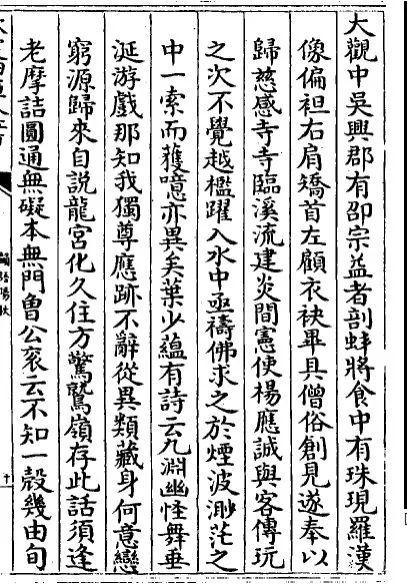 大觀中吳興郡有邵宗益者剖蚌將食中有珠現羅漢
像偏袒右肩矯首左顧衣袂畢具僧俗創見遂奉以
歸慈感寺寺臨溪流建炎間憲使楊應誠與客傳玩
之次不覺越檻躍入水中亟禱佛求之於煙波渺茫之
中一索而獲噫亦異矣葉少蘊有詩云九淵幽怪舞垂
涎游戲那知我獨尊應跡不辭從異類藏身何意戀
窮源歸來自說龍宮化久住方驚鷲嶺存此話須逢
老摩詰圓通無礙本無門曾公衮云不知一殼幾由旬
韻語陽秋
十